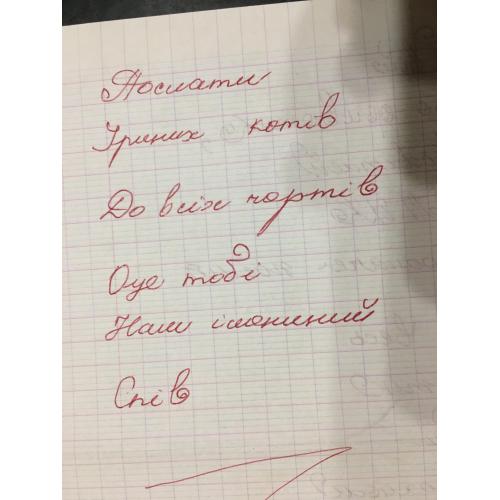 Послати
Іриних котів
До всіх чортів
Оце тобі
Наш
Спів